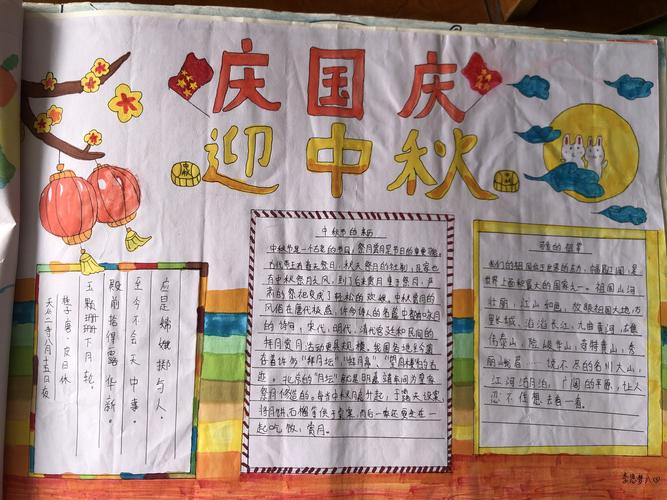 庆国庆
迎中秋
天竺寺八月十五日夜
桂子 唐·皮日休
玉颗珊珊下月轮,
殿前拾得露华新。
至今不会天中事,
应是嫦娥掷与人。
中秋节的来历
中秋节是一个古老的节日,祭月赏月是节日的重要习俗。
古代帝王有春天祭日,秋天祭月的社制,民家也
有中秋祭月之风,到了后来赏月重于祭月,严
肃的祭祀变成了轻松的欢娱。中秋赏月的
风俗在唐代极盛,许多诗人的名篇中都有咏月
的诗句,宋代、明代、清代宫廷和民间的
拜月赏月活动更具规模。我国各地至今遗
存着许多"拜月坛""拜月亭""望月楼"的古
迹。北京的"月坛"就是明嘉靖年间为皇家
祭月修造的。每当中秋月亮升起,于露天设案,
将月饼、石榴
一起吃饭,赏月。
可爱的祖国
我们的祖国位于世界的东方,幅员辽阔,是
世界上面积最大的国家之一。祖国山河
壮丽,江山如画,放眼祖国大地,万
里长城,滔滔长江,九曲黄河,
泰山,险峻华山,奇特黄山,秀
丽峨眉……说不尽的名川大山,
江河湖泊,广阔的平原,让人
忍不住想去看一看。